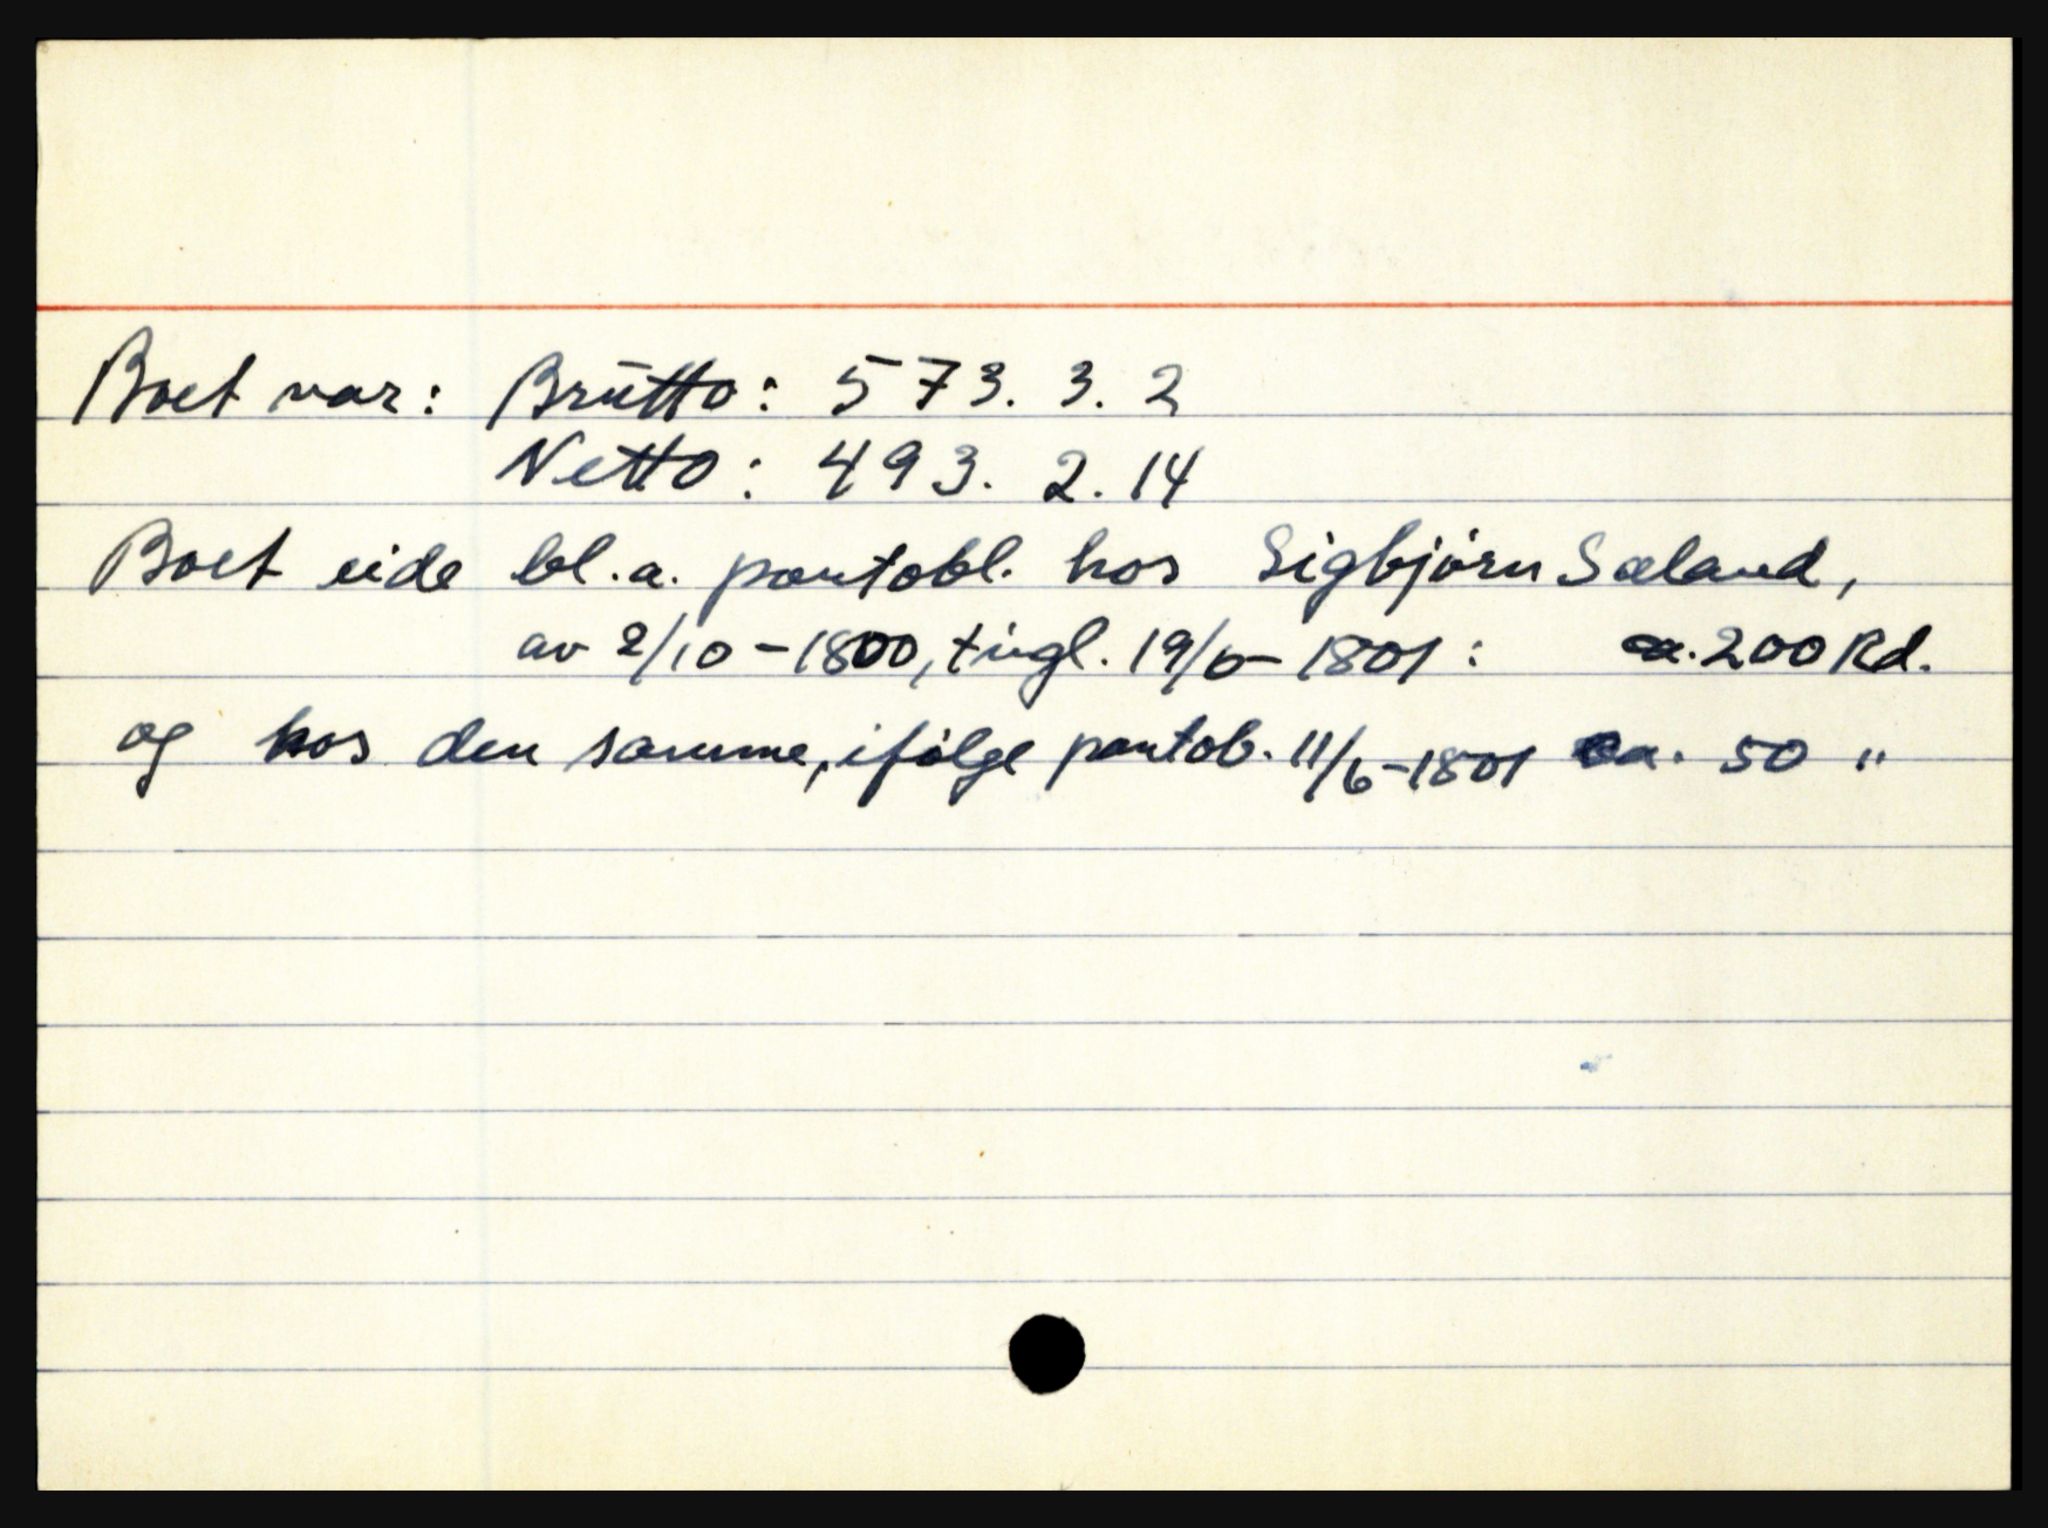 Boet var: Brutto: 573. 3. 2
Netto: 493. 2. 14
Boet eide bl.a. pantobl. hos Sigbjørn Sæland,
av 2/10-1800, tingl. 19/6-1801: ca. 200 Rd.
og hos den samme, ifølge pantob. 11/6-1801 ca. 50 "